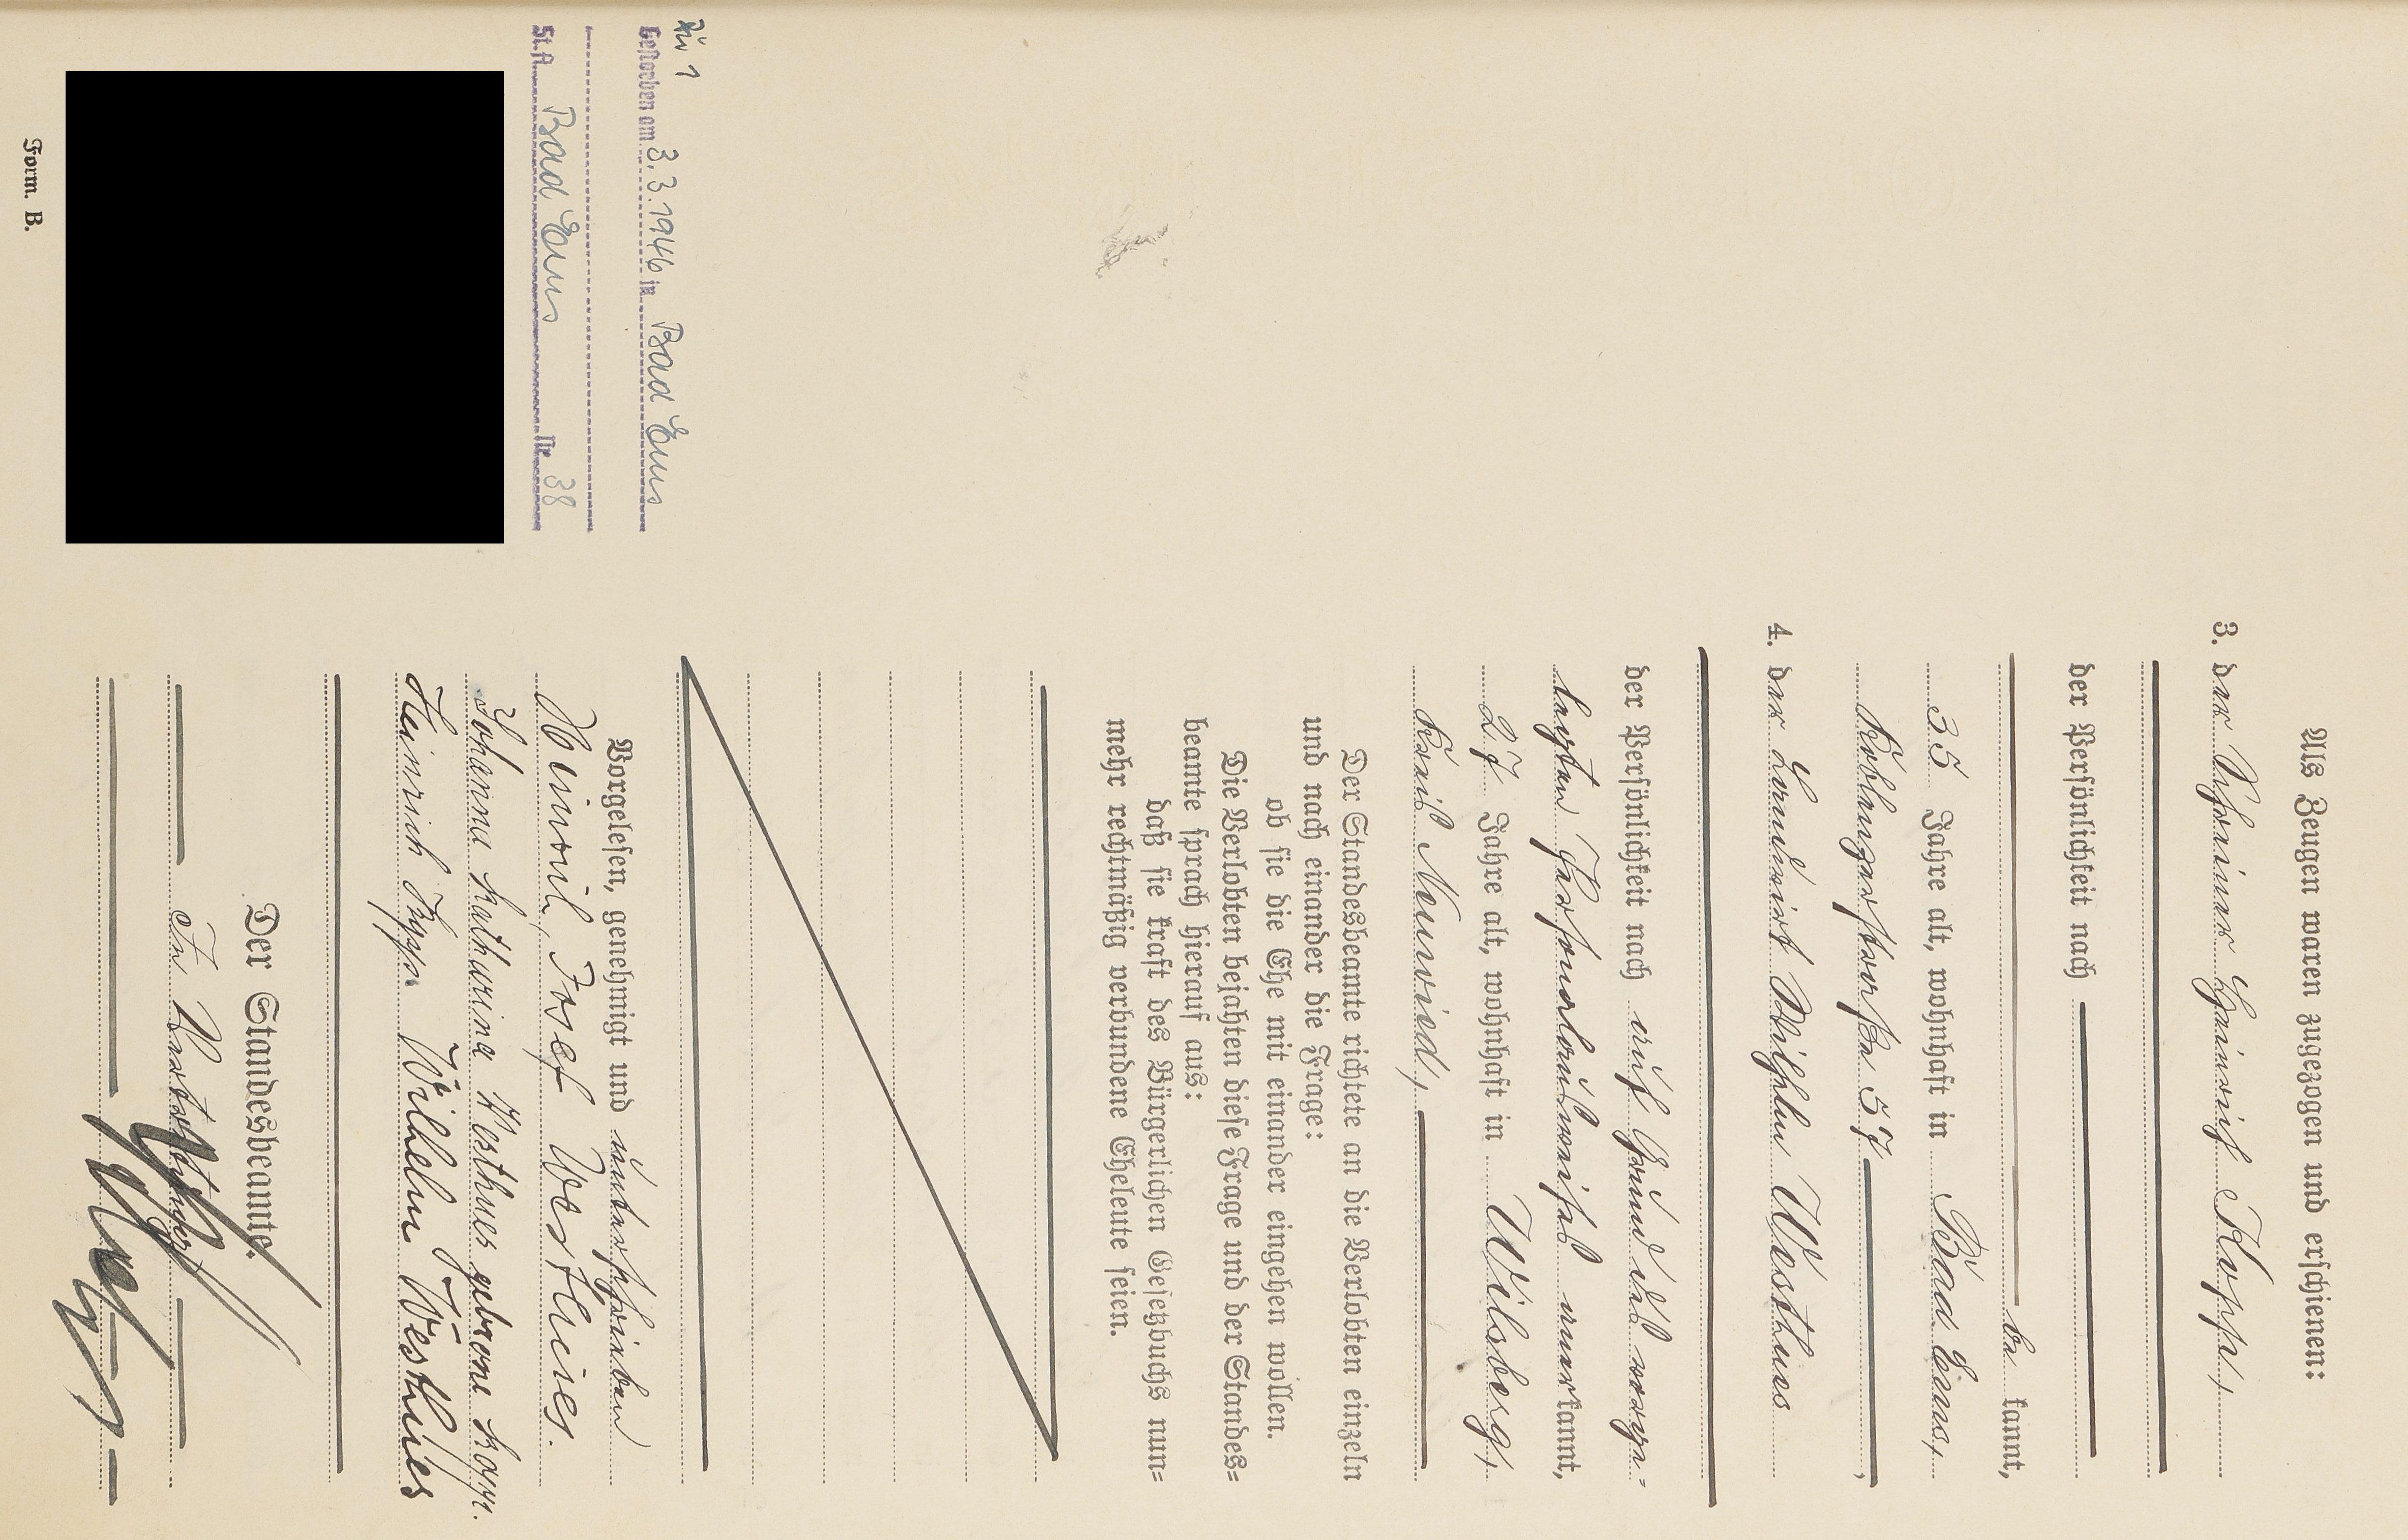 Als Zeugen waren zugezogen und erschienen:
3. der Schreiner Heinrich Kopp,
der Persönlichkeit nach
be kannt,
35 Jahre alt, wohnhaft in Bad Ems,
Koblenzerstraße 57,
4. der Landwirt Wilhelm Westhues
der Persönlichkeit nach auf Grund des vorge-
legten Personalausweises anerkannt,
27 Jahre alt, wohnhaft in Wilsberg,
Kreis Neuwied,
Der Standesbeamte richtete an die Verlobten einzeln
und nach einander die Frage:
ob sie die Ehe mit einander eingehen wollen.
Die Verlobten bejahten diese Frage und der Standes=
beamte sprach hierauf aus:
daß sie kraft des Bürgerlichen Gesetzbuchs nun=
mehr rechtmäßig verbundene Eheleute seien.
Vorgelesen, genehmigt und unterschrieben
Heinrich, Josef Westhues.
Johanna Katharina Westhues geborene Kopp.
Heinrich Kopp. Wilhelm Westhues
Der Standesbeamte.
In Vertretung
Zu 1
Gestorben am 3.3.1946 in Bad Ems
St.A. Bad Ems Nr. 38
Form. B.